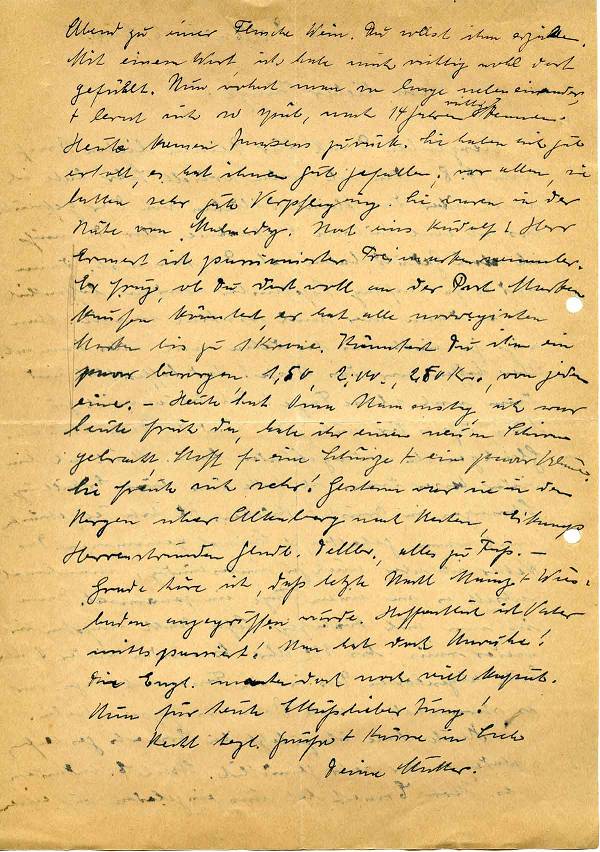 Abend zu einer Flasche Wein. Du sollst ihm erzählen.
Mit einem Wort, ich habe mich richtig wohl dort
gefühlt. Nun wohnt man so lange nebeneinander,
+ lernt sich so spät, nach 14 Jahren richtig kennen.
Heute kamen Janssens zurück. Sie haben sich gut
erholt, es hat ihnen gut gefallen, vor allem, sie
hatten sehr gute Verpflegung. Sie waren in der
Nähe von Malmedy. Noch eins Rudolf! Herr
ist passionierter Freimarkensammler.
Er fragt, ob Du dort wohl an der Post Marken
kaufen könntest, er hat alle norwegischen
Marken bis zu 1 Krone. Könntest Du ihm ein
paar besorgen 1,50, 2,00, 2,50 Kr., von jeder
eine. – Heute hat Oma Namenstag, ich war
heute früh da, habe ihr einen neuen Schirm
gebracht, Stoff f. eine Schürze + ein paar
Sie freute sich sehr! Gestern war sie in dem
Regen über Altenberg nach
Herrenstrunden Gladb. Dellbr., alles zu Fuß. –
Grade höre ich, daß letzte Nacht Mainz + Wies-
baden angegriffen wurde. Hoffentlich ist Vater
nichts passiert! Man hat doch Unruhe!
Die Engl. machen doch noch viel kaputt.
Nun für heute Schluß lieber Jung!
Recht herzl. Grüße + Küsse in Liebe
Deine Mutter.